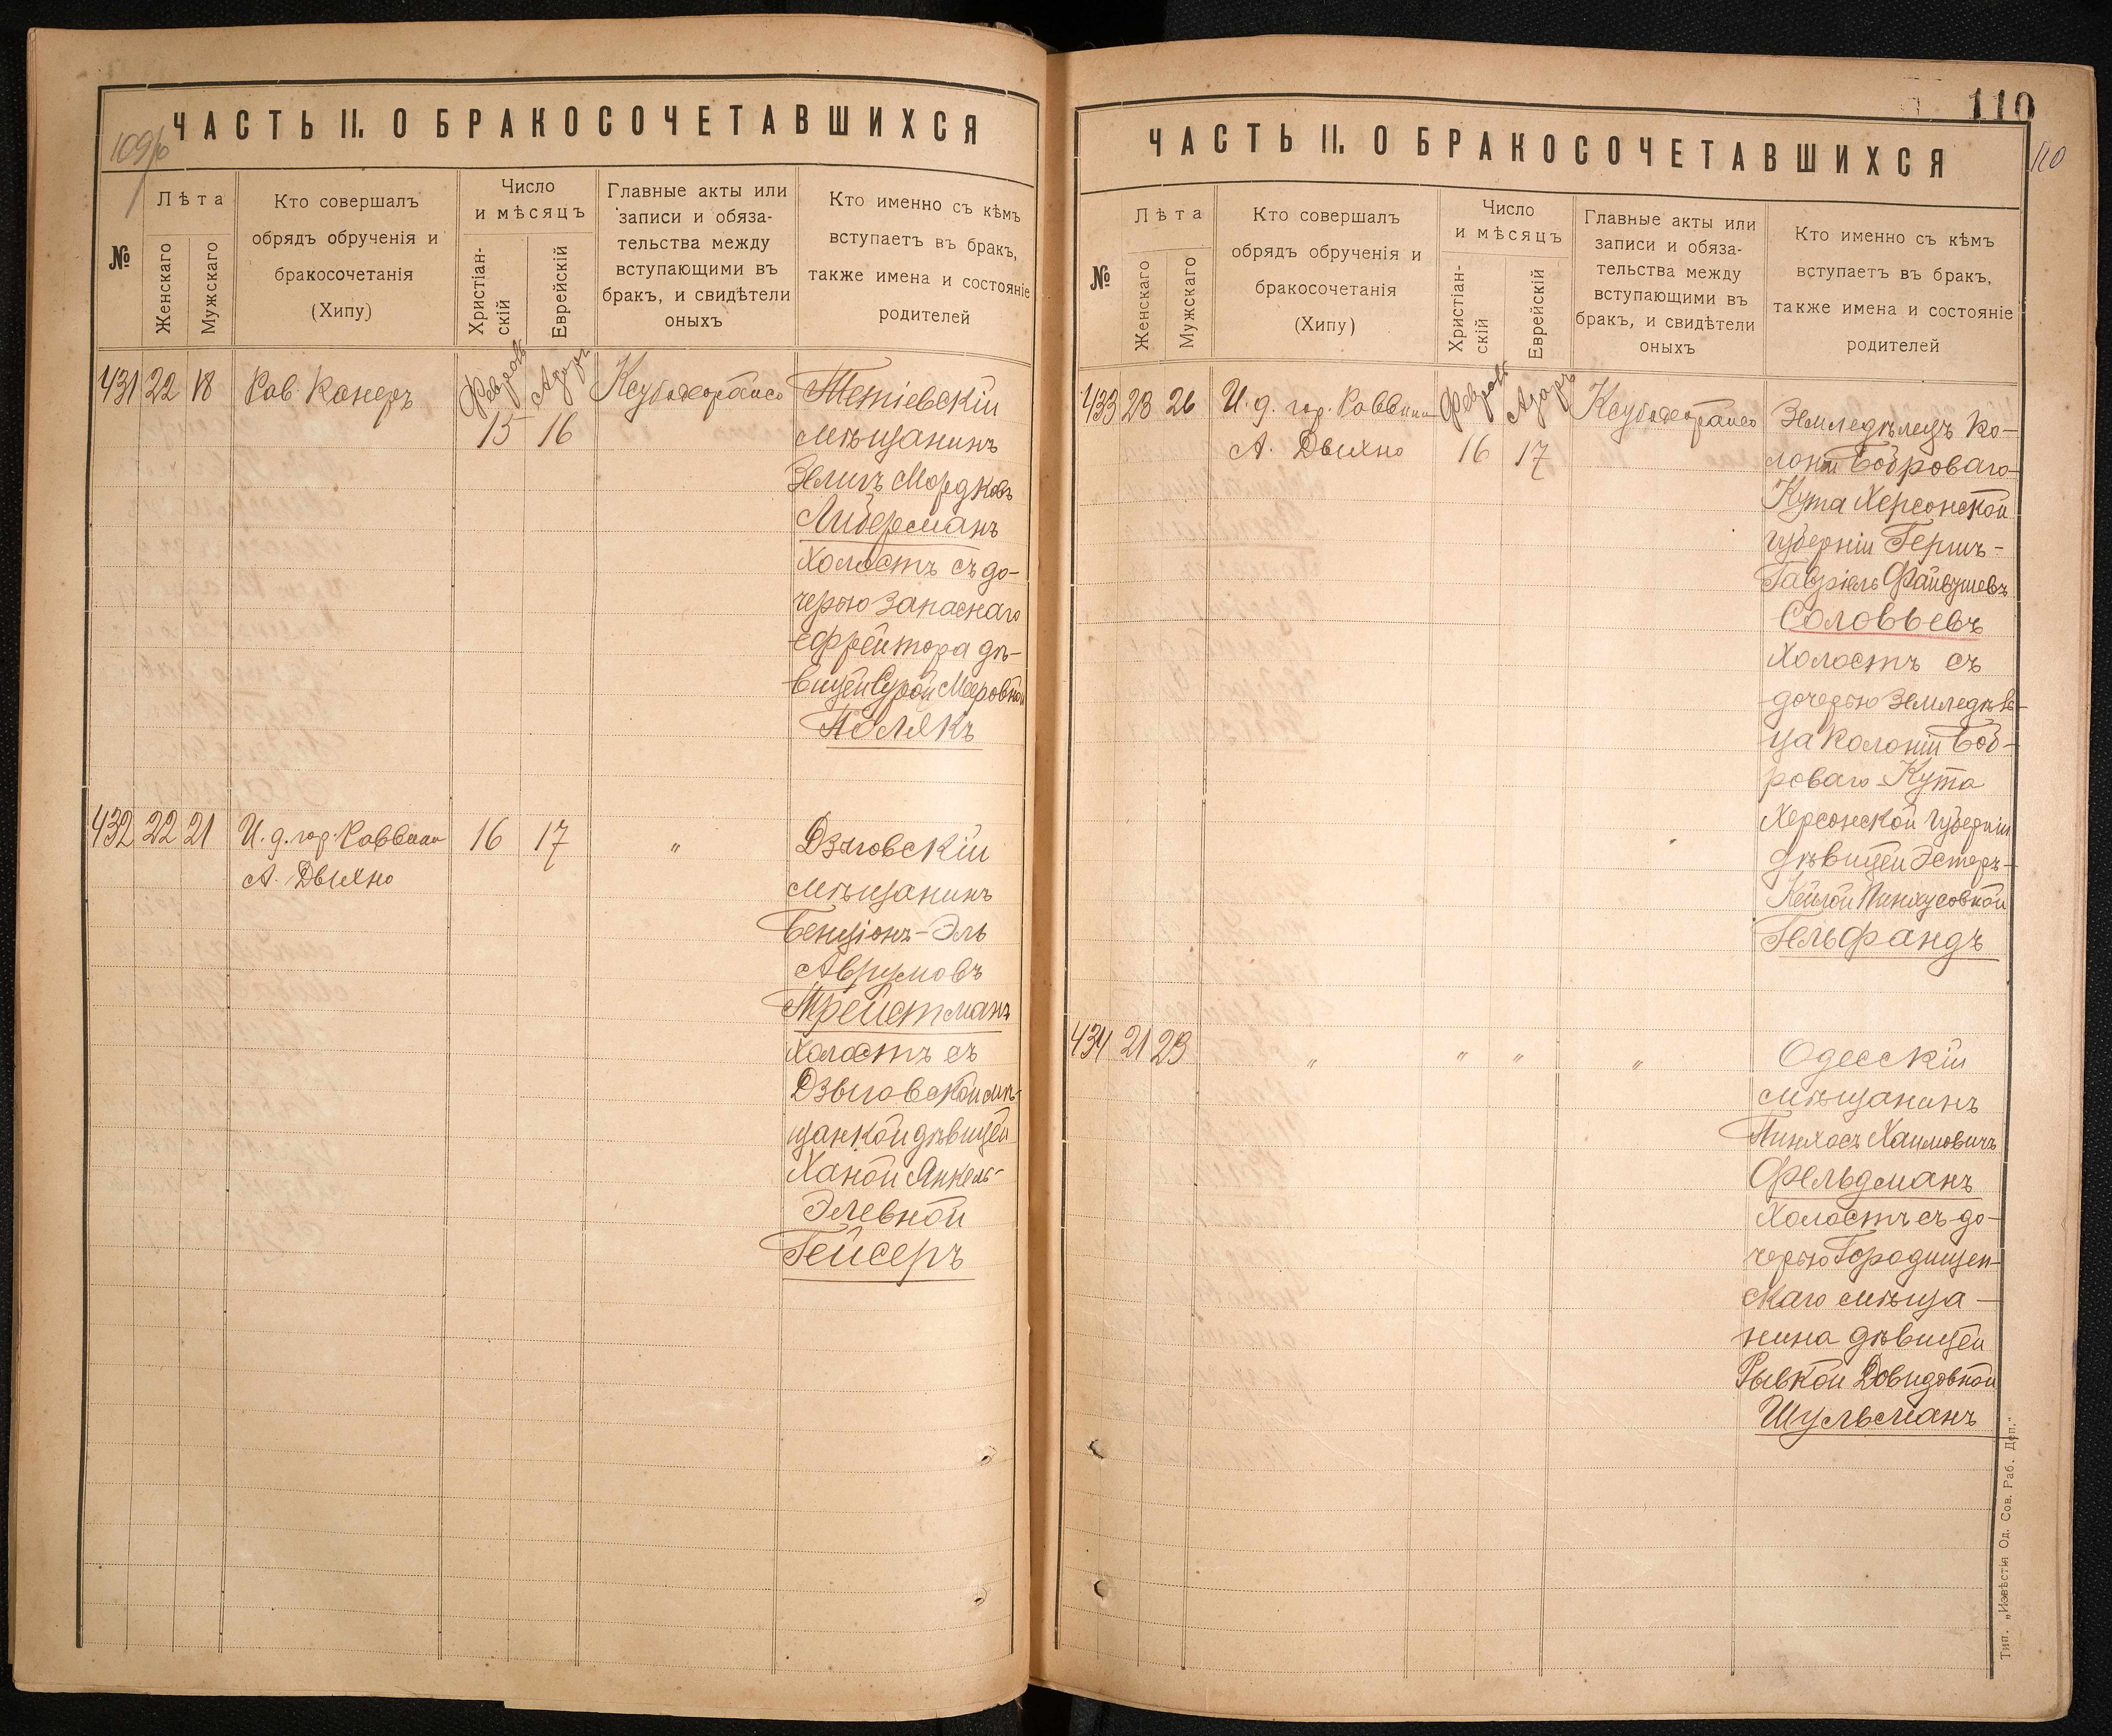 ЧАСТЬ II. О БРАКОСОЧЕТАВШИХСЯ
№
Лѣта
Женскаго
Мужскаго
Кто совершалъ
обрядъ обрученія и
бракосочетанія
(Хипу)
Число
и мѣсяцъ
Христіан-
скій
Еврейскій
Главные акты или
записи и обяза-
тельства между
вступающими въ
бракъ, и свидѣтели
оныхъ
Кто именно съ кѣмъ
вступаетъ въ бракъ,
также имена и состояніе
родителей
431 22 18 Рав. Канеръ
15 16
Тетіевскій
мѣщанинъ
Зелигъ Мордковъ
Либерманъ
холостъ съ до-
черью запаснаго
ефрейтора дѣ-
вицей Сурой Мееровной
Полякъ
432 22 21 И. д. гор. Раввина 16 17 "
А. Двихно
Дзыговскій
мѣщанинъ
Бенціонъ-Эль
Аврумовъ
Трейстманъ
холостъ съ
Дзыговской мѣ-
щанкой дѣвицей
Ханой Янкель-
Элевной
Гейсеръ
110
ЧАСТЬ II. О БРАКОСОЧЕТАВШИХСЯ
110
№
Лѣта
Женскаго
Мужскаго
Кто совершалъ
обрядъ обрученія и
бракосочетанія
(Хипу)
Число
и мѣсяцъ
Христіан-
скій
Еврейскій
Главные акты или
записи и обяза-
тельства между
вступающими въ
бракъ, и свидѣтели
оныхъ
Кто именно съ кѣмъ
вступаетъ въ бракъ,
также имена и состояніе
родителей
433 23 26 И. д. гор. Раввина
А. Двихно 16 17
Земледѣлецъ ко-
лоніи Боброваго
Кута Херсонской
губерніи Гершъ-
Гавріель Файвушевъ
Соловьевъ
холостъ съ
дочерью земледѣль-
ца колоніи Боб-
роваго Кута
Херсонской губерніи
дѣвицей Эстеръ-
Кейлой Пинхусовной
Гельфандъ
434 21 23 " " " "
Одесскій
мѣщанинъ
Пинхосъ Хаимовичъ
Фельдманъ
холостъ съ до-
черью Городищен-
скаго мѣща-
нина дѣвицей
Рывкой Довидовной
Шульманъ
Тип. „Извѣстія Од. Сов. Раб. Деп."